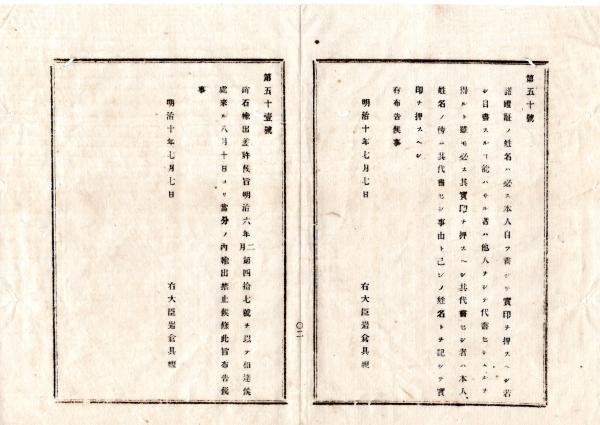 第五十號
諸證書ノ姓名ハ必ス本人自ラ書シテ實印ヲ押スヘシ若
シ自書スルヿ能ハサル者ハ他人ヲシテ代書セシムルヲ
得ルト雖モ必ス其實印ヲ押スヘシ其代書セシ者ハ本人
姓名ノ傍ニ其代書セシ事由ト己レノ姓名トヲ記シテ實
印ヲ押スヘシ
右布告候事
明治十年七月七日
右大臣岩倉具視
第五十壹號
硝石輸出差許候旨明治六年二月第四拾七號ヲ以テ相達候
處來ル八月十日ヨリ當分ノ內輸出禁止候條此旨布告候
事
明治十年七月七日
右大臣岩倉具視
〇二